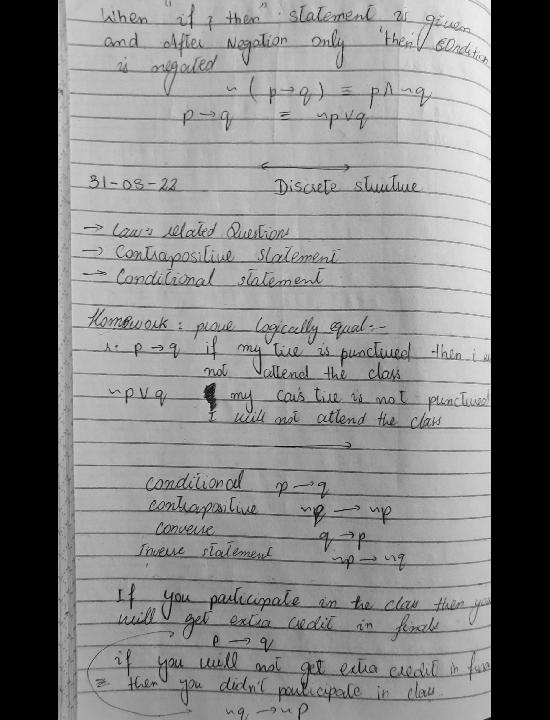 When "if, then" statement is given
and After Negation only 'then' condition
is negated
~ ( p→q) ≡ p∧~q
p→q ≡ ~p∨q
31-08-22 Discrete structure
→ Law's related Questions
→ Contrapositive statement
→ Conditional statement
Homework: prove logically equal:-
p→q if my tire is punctured then i
not attend the class
~p∨q my car's tire is not punctured
I will not attend the class
conditional p→q
contrapositive ~p → ~p
converse q→p
Inverse statement ~p → ~q
If you participate in the class then you
will get extra credit in finals
p → q
if you will not get extra credit in
≡ then you didn't participate in class.
~q → ~p